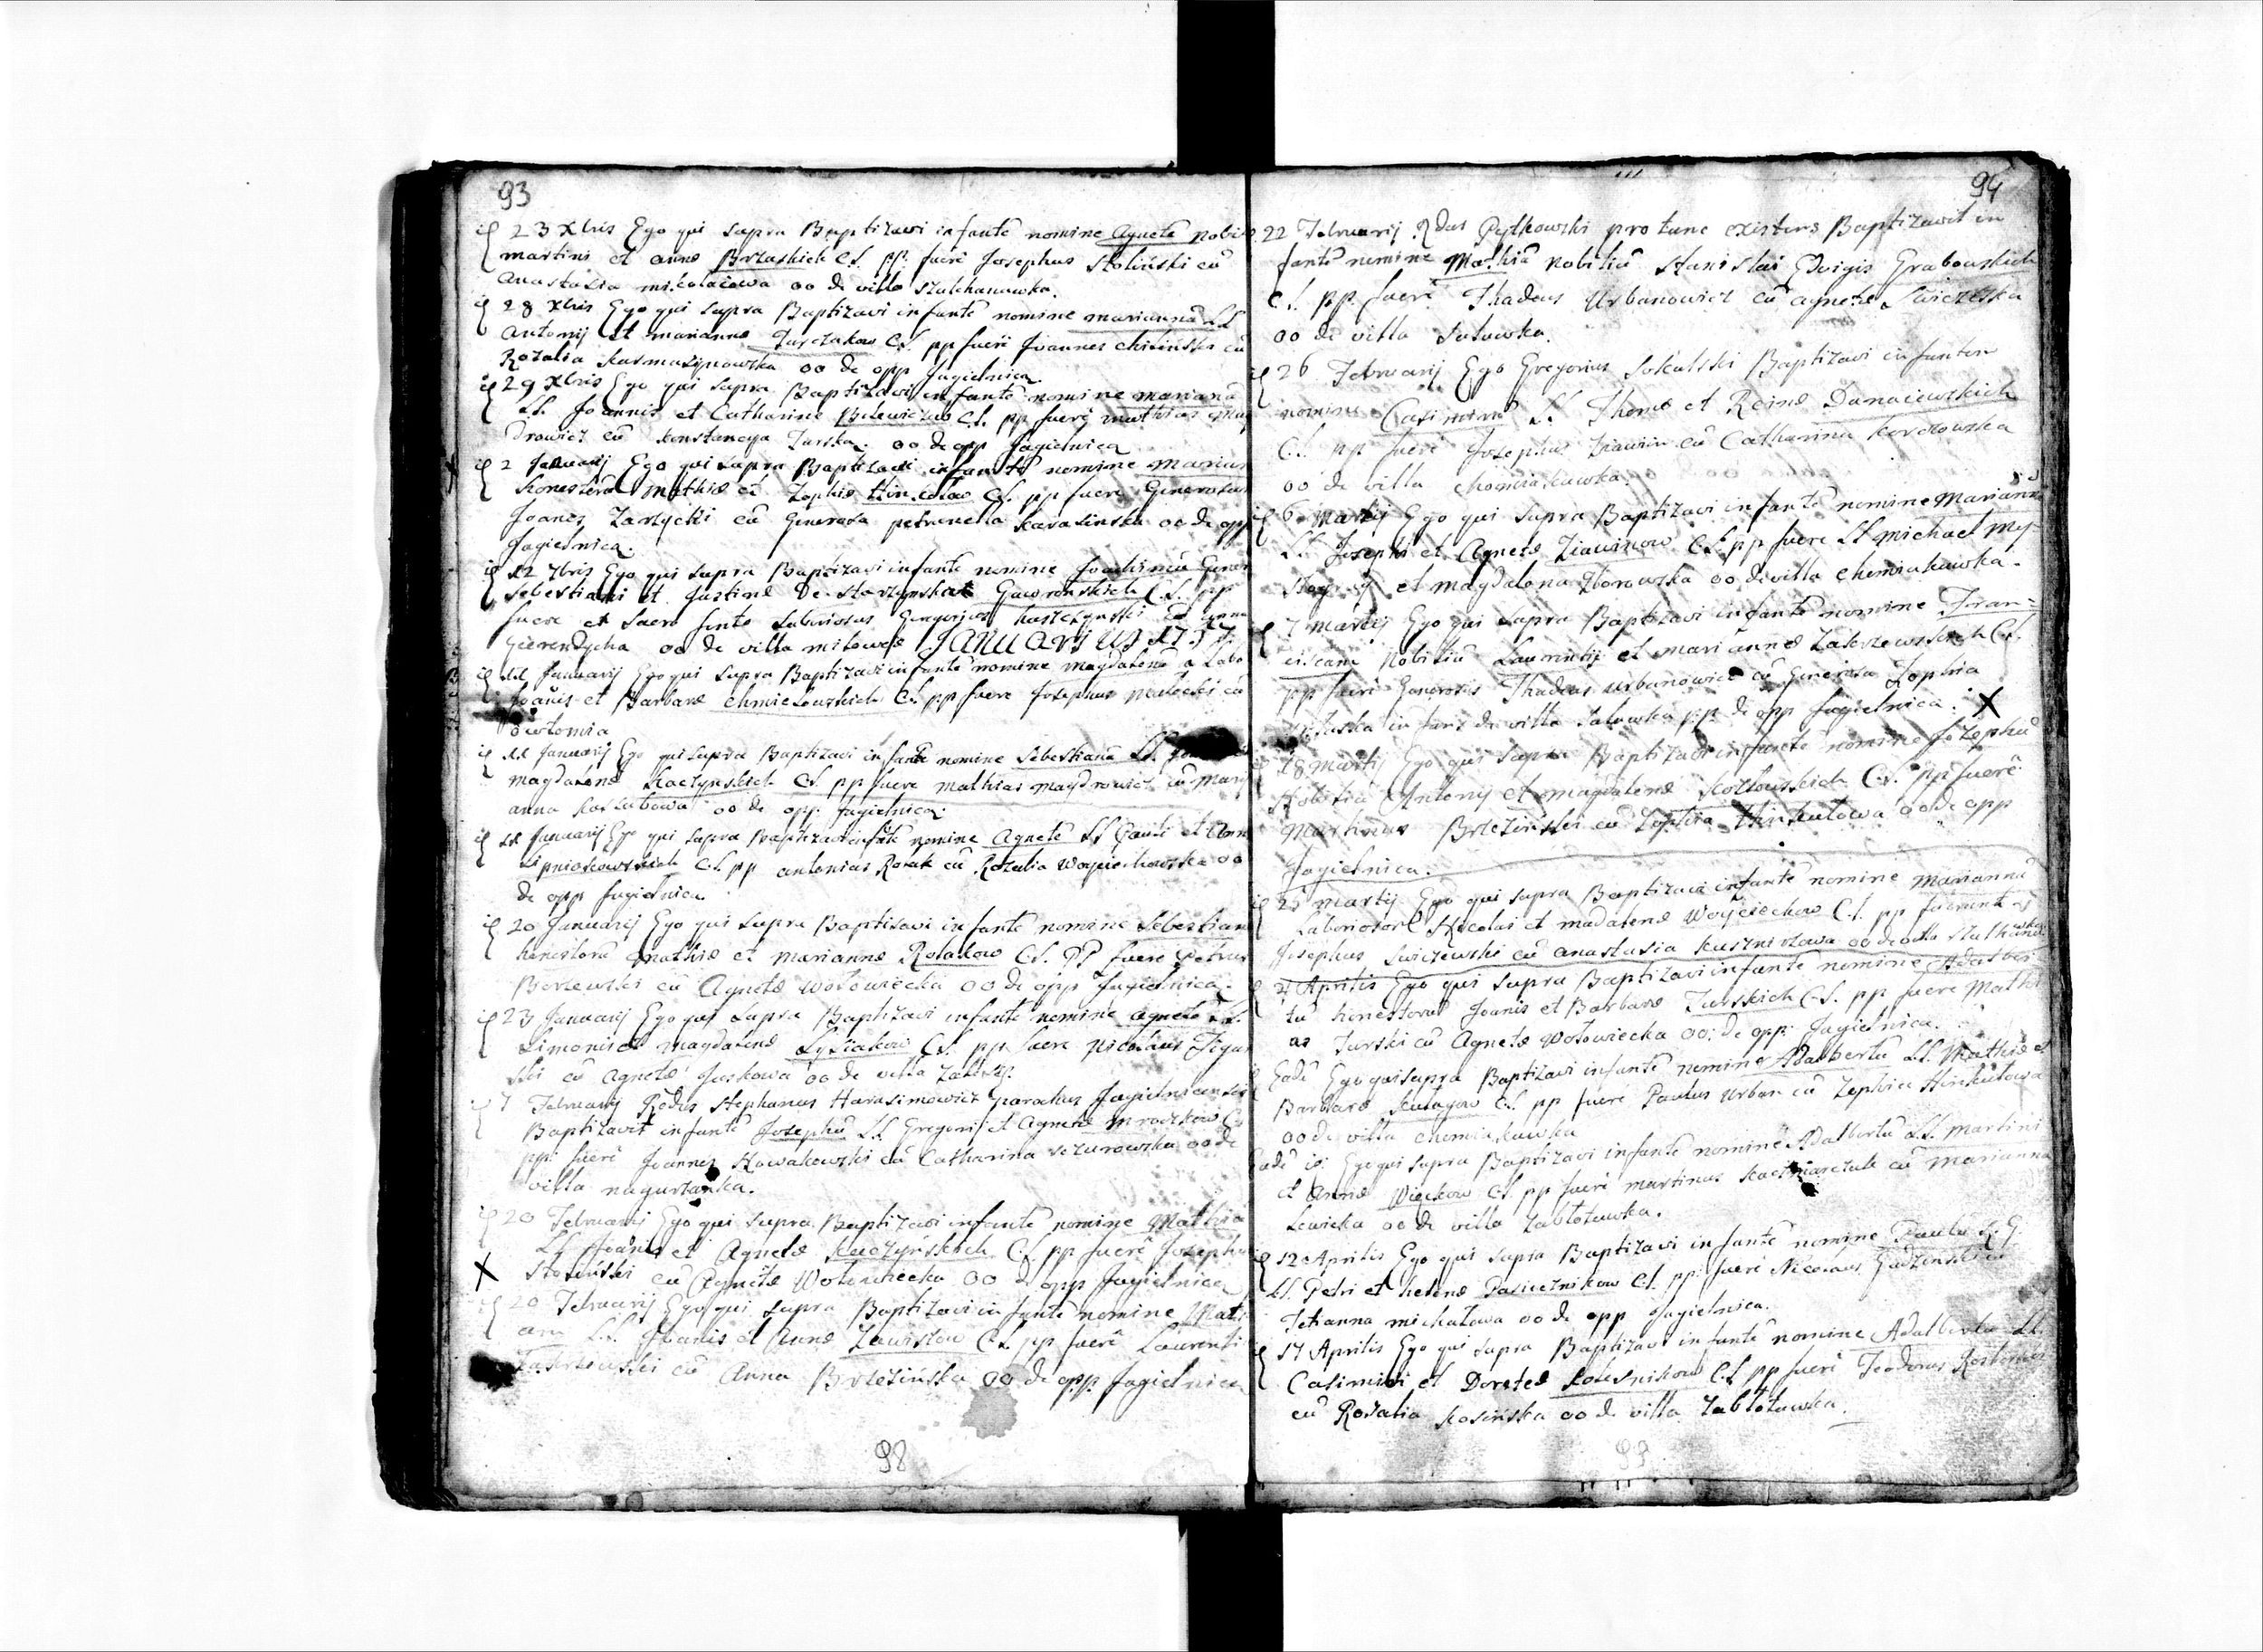 93
23 Xbris Ego qui supra Baptizavi infantē nomine Agnetē Nobi
Martini et Annæ Brzuskich C.L. pp. fuerē Josephus Stoliński cū
Anastasia Mikołaiowa oo de villa Szulhanuwka.
28 Xbris Ego qui supra Baptizavi infantē nomine mariannā LL
Antonij et mariannæ Turczakow C.L. pp fuerē Joannes chiliński cū
Rozalia Karmasynowska oo de opp Jagielnica
29 Xbris Ego qui supra Baptizavi infantē nomine mariana
LL. Joannis et Catharinæ Bilewiczow C.L. pp fuerē mathias Maj
drowicz cū Konstancya Turska. oo de opp Jagielnica
2 Januarij Ego qui supra Baptizavi infantē nomine Marian
honestorū Mathiæ et Zophiæ Hinkołow C.L. pp fuere Generosus
Joanes Zarzycki cū Generosa petronella Karasinska oo de opp
Jagielnica.
12 Xbris Ego qui supra Baptizavi infantē nomine Joachimū Gener
Sebestiani et Justinæ De Starzynskie Gaworenskich C.L. pp
fuere et sacro fonte Laboriosus Gregorijus Kusczynski cū anna
de villa milowce JANUARIUS 1757.
11 Januarij Ego qui supra Baptizavi infantē nomine Magdalenā a Labo
Joañis et Barbaræ Chmielowskich C.L. pp fuere Josephus Malecki cū
11 Januarij Ego qui supra Baptizavi infantē nomine Sebestianū LL.
magdalenæ Kaczynskich C.L. pp fuere mathias maydrowicz cū Mari
anna Koszubowa oo de opp. Jagielnica.
11 Januarij Ego qui supra Baptizavi infātē nomine Agnetē LL Pauli et Ann
Lipniakowskich C.L. pp antonius Rolak cū Rozalia Woyciechowska oo
de opp Jagielnica
20 Januarij Ego qui supra Baptisavi infantē nomine Sebestian
honestorū Mathiæ et Mariannæ Rolakow C.L. PP fuere Petrus
Borzewski cū Agnete Wołowiecka oo de opp Jagielnica.
23 Januarij Ego qui supra Baptizavi infantē nomine agnetē LL.
Simonis et magdalenæ Łysiakow C.L. pp fuere Nicolaus Figur
ski cū Agnete Juskowa oo de villa Zalesie.
7 Februarij Rēdus Stephanus Harasimowicz parochus Jagielnicensis
Baptizavit infantē Josephū LL Gregorij et Agnetæ Mroczkow C
pp. fuerē Joannes Nowakowski cū Catharina Sczurowska oo de
villa nagurzanka.
20 Februarij Ego qui supra Baptizavi infantē nomine Mathia
LL Joānis et Agnetæ Kaczyńskich C.L. pp fuerē Joseph
Stosiński cū Agnete Wołowiecka oo de opp Jagielnica
20 Februarij Ego qui supra Baptizavi infantē nomine Mat
am LL. Joanis et Annæ Zawisłow C.L. pp fuerē Laurenti
Zakrzewski cū Anna Brzezińska oo de opp. Jagielnica
98
94
22 Februarij Rdus Pytkowski pro tunc existens Baptizavit in
fantē nomine Mathiā Nobiliū Stanislai Edvigis Grabowskich
C.L. pp. fuerē Thadeus Urbanowicz cū Agnete Swiczeska
oo de villa Sałowka.
26 Februarij Ego Gregorius Sokulski Baptizavi infantem
nomine Casimirū LL. Thomæ et Reinæ Dunaiewskich
C.L. pp fuerē Josephus Ziawin cū Catharina Korczowska
oo de villa Chomiakuwka.
6 Martij Ego qui supra Baptizavi infantē nomine Mariann
LL. Josephi et Agnetæ Ziawinow C.L. pp fuere LL michael
et magdalena Zborowska oo de villa Chomiakuwka.
7 Martij Ego qui supra Baptizavi infantē nomine Fran=
ciscam Nobiliū Laurentij et mariannæ Zakrzewskich C.L.
pp fuerē Generosis Thadeus Urbanowicz cū Generosa Zophia
de villa Sałowka pp. de opp Jagielnica.
18 Martij Ego qui supra Baptizavi infantē nomine Jozephū
Nobiliū Antonij et magdalenæ Kozłowskich C.L. pp fuerē
Martinus Brzeziński cū Zophia Hinkutowa oo de opp
Jagielnica.
25 Martij Ego qui supra Baptizavi infantē nomine Mariannā
Laboriosorū Nicolai et madalenæ Woyciechow C.L. pp fuerunt
Josephus Swiczewski cū Anastasia Kusznirłowa oo de villa Szulhanuwka
4 Aprilis Ego qui supra Baptizavi infantē nomine Adalber
tū honestorū Joanis et Barbaræ Turskich C.L. pp fuere Mathi
as Turski cū Agnete Wołowiecka oo: de opp: Jagielnica.
Eadē Ego qui supra Baptizavi infantē nomine Adalbertū LL. Mathiæ et
Barbaræ Kułagow C.L. pp fuere Paulus Urban cū Zophia Hinkutowa
oo de villa Chomiakuwka
Eadē is: Ego qui supra Baptizavi infantē nomine Adalbertū LL. Martini
et Annæ Więckow C.L. pp fuerē martinus Kaczmarczuk cū Marianna
Lewicka oo de villa Zabłotuwka.
12 Aprilis Ego qui supra Baptizavi infantē nomine Paulū
LL. Petri et helenæ Pasiecznikow C.L. pp: fuerē Nicolaus Gudzinski cū
Tetianna michałowa oo de opp Jagielnica.
17 Aprilis Ego qui supra Baptizavi infantē nomine Adalbertū LL
Casimiri et Doroteæ Kolesnikow C.L pp fuerē Teodorus
cū Rozalia Kosińska oo de villa Zabłotuwka.
99